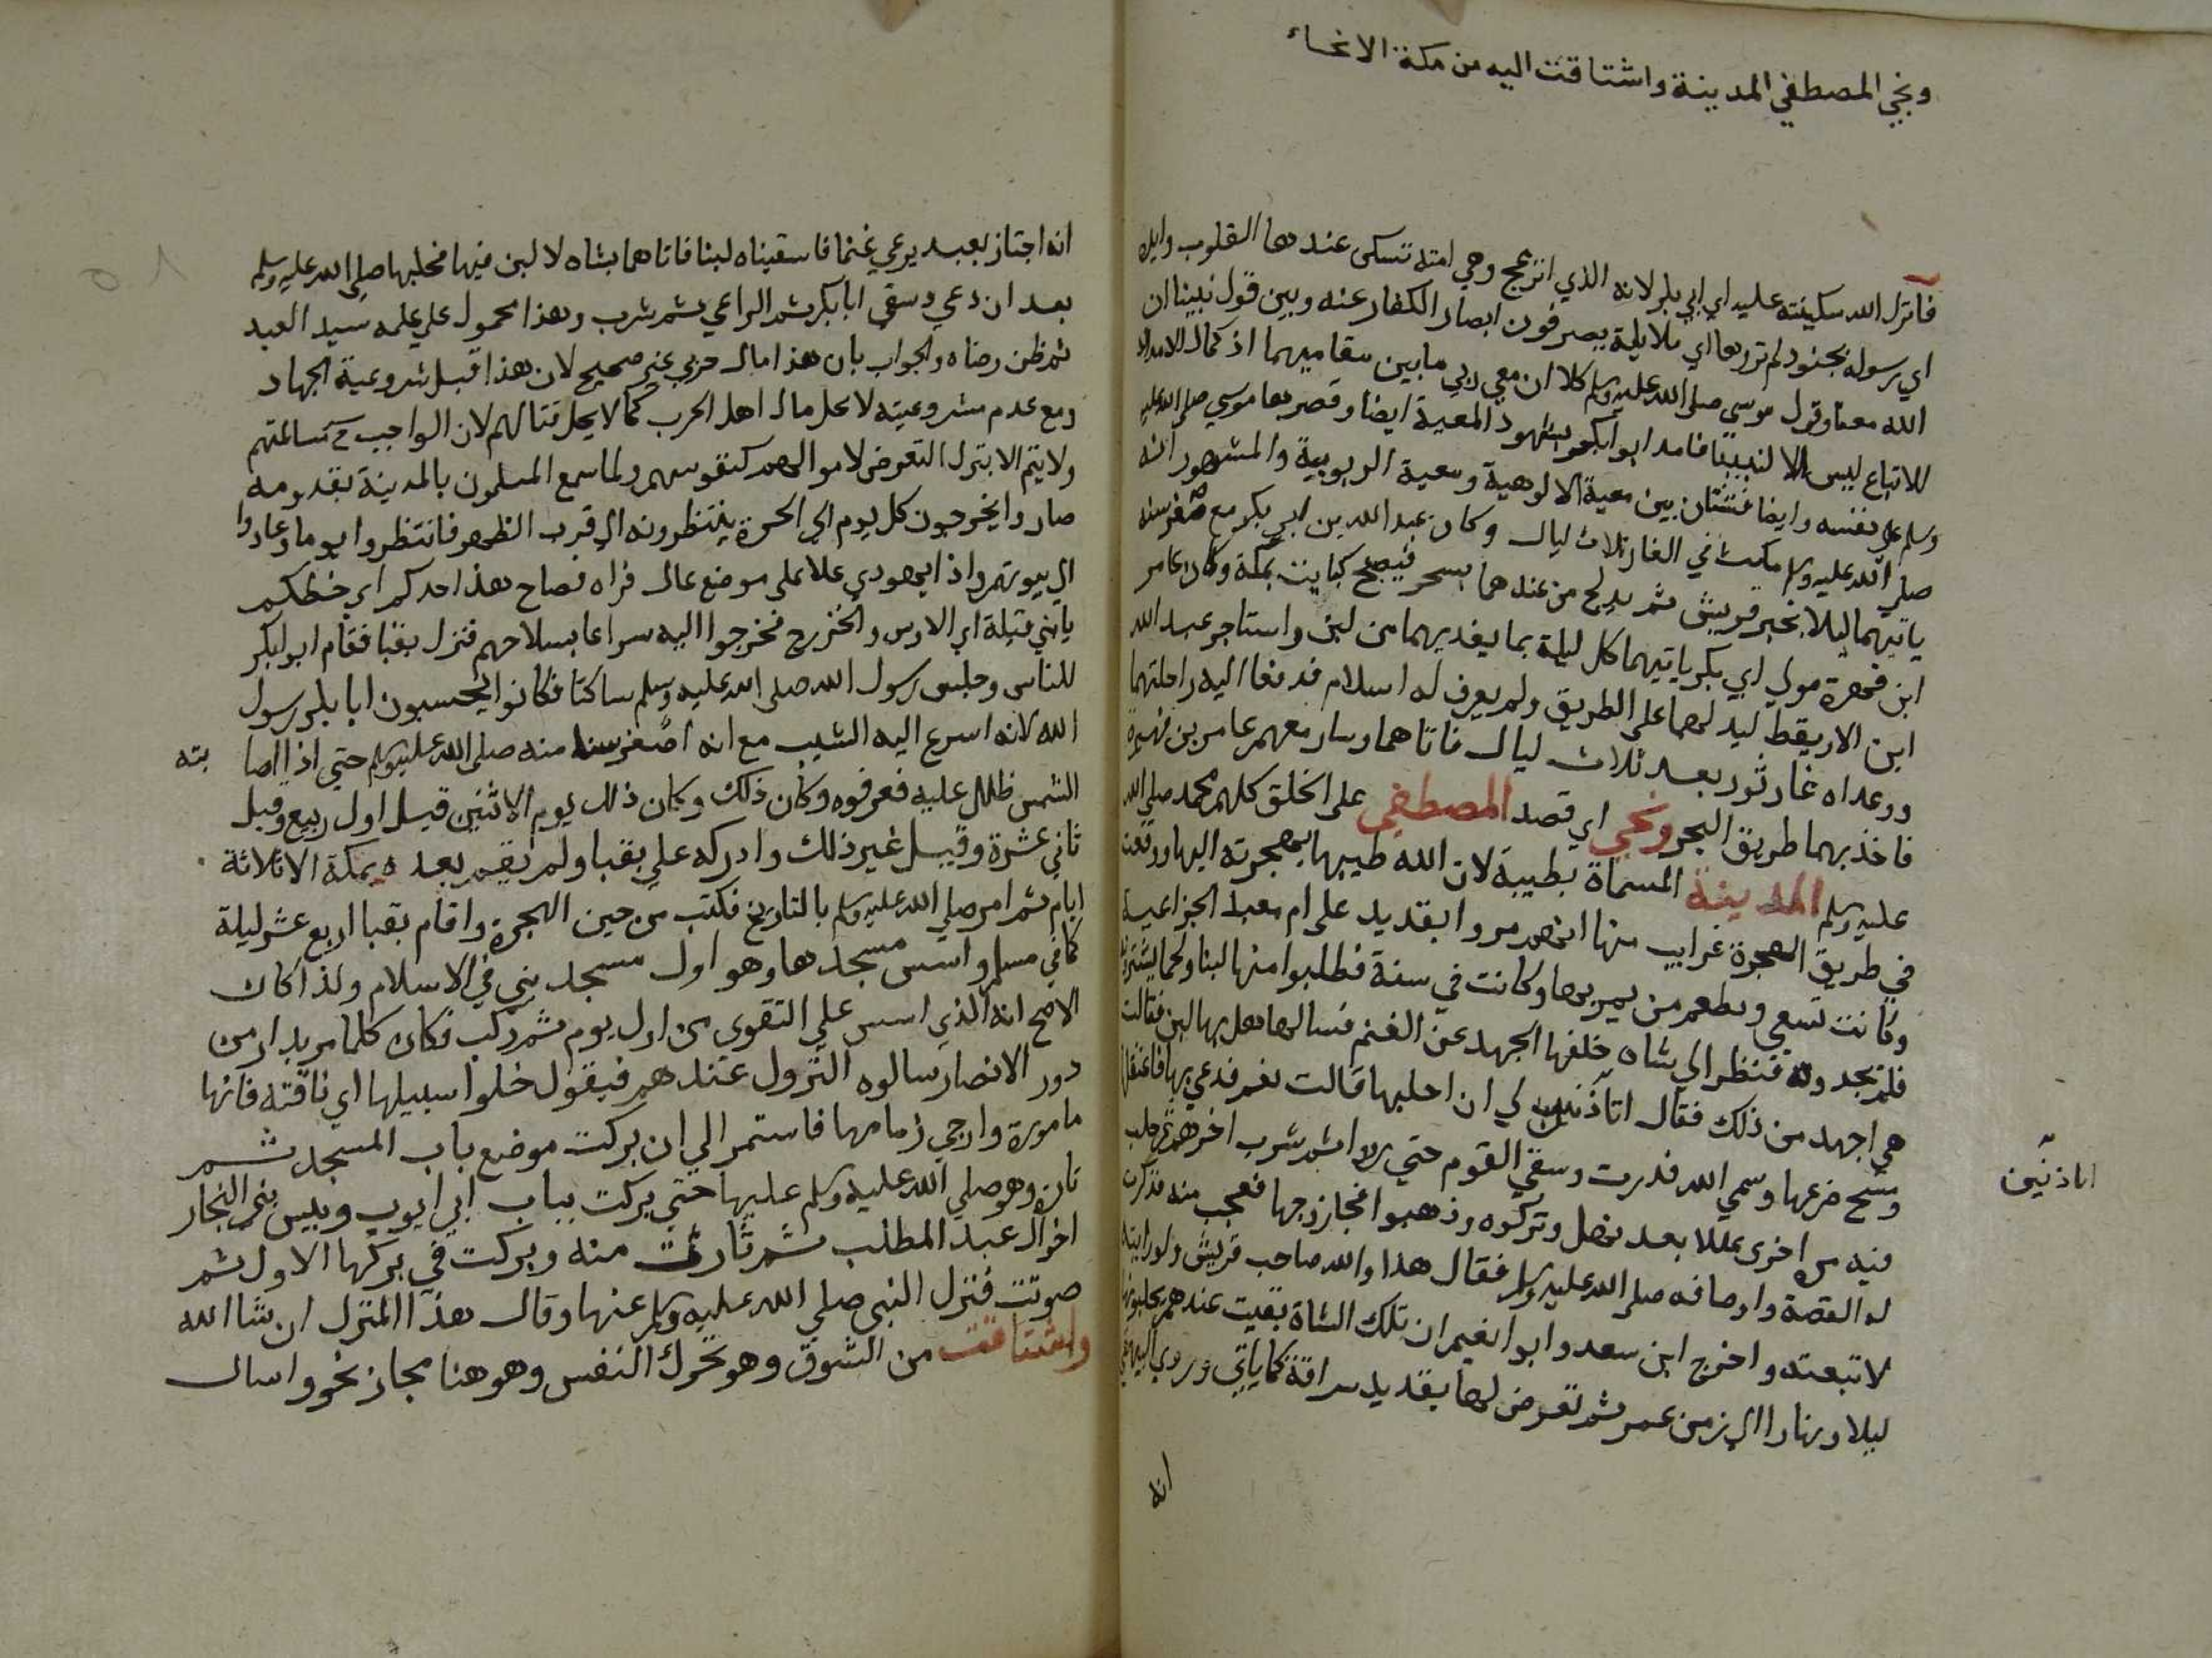 ونحي المصطفي المدينة واشتاقت اليه من مكة الانحاء
فانزل الله سكينته عليه اي ابي بكر لانه الذي انزعج وهي امنة تسكن عندها القلوب وايده
اي رسوله بجنود لم تروها اي ملايكة يصرفون ابصار الكفار عنه وبين قول نبينا ان
الله معنا وقول موسي صلي الله عليه وسلم كلا ان معي ربي ما بين مقاميهما اذ كمال الامداد
للاتباع ليس الا لنبينا فامد ابو ابكر بشهود المعية ايضا وقصرها موسي صلي الله عليه
وسلم علي نفسه وايضا فشتان بين معية الالوهية ومعية الربوبية والمشهور انه
صلي الله عليه وسلم مكث في الغار ثلاث ليال وكان عبد الله بن ابي بكر مع صغر سنه
ياتيهما ليلا بخبر قريش ثم يدلج من عندهما بسحر فيصبح كبايت بمكة وكان عامر
ابن فهيرة مولي ابي بكر ياتيهما كل ليلة بما يغديهما من لبن واستاجر عبد الله
ابن الاريقط ليدلهما علي الطريق ولم يعرف له اسلام فدفعا اليه راحلتيهما
وواعداه غار ثور بعد ثلاث ليال فاتاهما وسار معهم عامر بن فهيرة
فاخذ بهما طريق البحر ونحي اي قصد المصطفي علي الخلق كلهم محمد صلي الله
عليه وسلم المدينة المسماة بطيبة لان الله طيبها بهجرته اليها ووقعت
في طريق الهجرة غرايب منها انهم مروا بقديد علي ام معبد الخزاعية
وكانت تسقي وتطعم من يمر بها وكانت في سنة فطلبوا منها لبنا ولحما يشترونه
فلم يجدوه فنظر الي شاه خلفها الجهد عن الغنم فسالها هل بها لبن فقالت
هي اجهد من ذلك فقال اتاذنين لي ان احلبها قالت نعم فدعي بها فاعتقلها
ومسح ضرعها وسمي الله فدرت وسقي القوم حتي رووا ثم شرب اخرهم ثم حلب
اتاذنين
فيه مرة اخري عللا بعد نهل وتركوه وذهبوا فجا زوجها فعجب منه فذكرت
له القصة واوصافه صلي الله عليه وسلم فقال هذا والله صاحب قريش ولو رايته
لاتبعته واخرج ابن سعد وابوا نعيم ان تلك الشاة بقيت عندهم يحلبونها
ليلا ونهارا الي زمن عمر ثم تعرض لهما بقديد سراقة كما ياتي وروي البيهقي
انه
انه اجتاز بعبد يرعي غنما فاسقيناه لبنا فاتاهما بشاه لا لبن فيها فحلبها صلي الله عليه وسلم
بعد ان دعي وسقي ابا بكر ثم الراعي ثم شرب وهذا محمول علي علمه سيد العبد
ثم ظن رضاه والجواب بان هذا مال حربي غير صحيح لان هذا قبل شروعية الجهاد
ومع عدم مشروعيته لا يحل مال اهل الحرب كما لا يحل قتالهم لان الواجب ح مسالمتهم
ولا يتم الا بترك التعرض لاموالهم كنفوسهم ولما سمع المسلمون بالمدينة بقدومه
صاروا يخرجون كل يوم الي الحرة ينتظرونه الي قرب الظهر فانتظروا يوما وعادوا
الي بيوتهم واذا يهودي علا علي موضع عال فراه فصاح هذا احدكم اي حظكم
يابني قيلة اي الاوس والخزرج فخرجوا اليه سراعا بسلاحهم فنزل بقبا فقام ابو بكر
للناس وجلس رسول الله صلي الله عليه وسلم ساكتا فكانوا يحسبون ابا بكر رسول
الله لانه اسرع اليه الشيب مع انه اصغر سنا منه صلي الله عليه وسلم حتي اذا اصا بته
الشمس ظلل عليه فعرفوه وكان ذلك وكان ذلك يوم الاثنين قيل اول ربيع وقيل
ثاني عشرة وقيل غير ذلك وادركه علي بقبا ولم يقم بعده بمكة الا ثلاثة
ايام ثم امر صلي الله عليه وسلم بالتاريخ فكتب من حين الهجرة واقام بقبا اربع عشر ليلة
كما في مسلم واسس مسجدها وهو اول مسجد بني في الاسلام ولذا كان
الاصح انه الذي اسس علي التقوي من اول يوم ثم ركب فكان كلما مر بدار من
دور الانصار سالوه النزول عندهم فيقول خلوا سبيلها اي ناقته فانها
مامورة وارخي زمامها فاستمر الي ان بركت موضع باب المسجد ثم
ثارت وهو صلي الله عليه وسلم عليها حتي بركت بباب ابي ايوب وبيس بني النجار
اخوال عبد المطلب ثم ثارت منه وبركت في بركها الاول ثم
صوتت فنزل النبي صلي الله عليه وسلم عنها وقال هذا المنزل ان شا الله
واشتاقت من الشوق وهو تحرك النفس وهو هنا مجاز نحو واسال